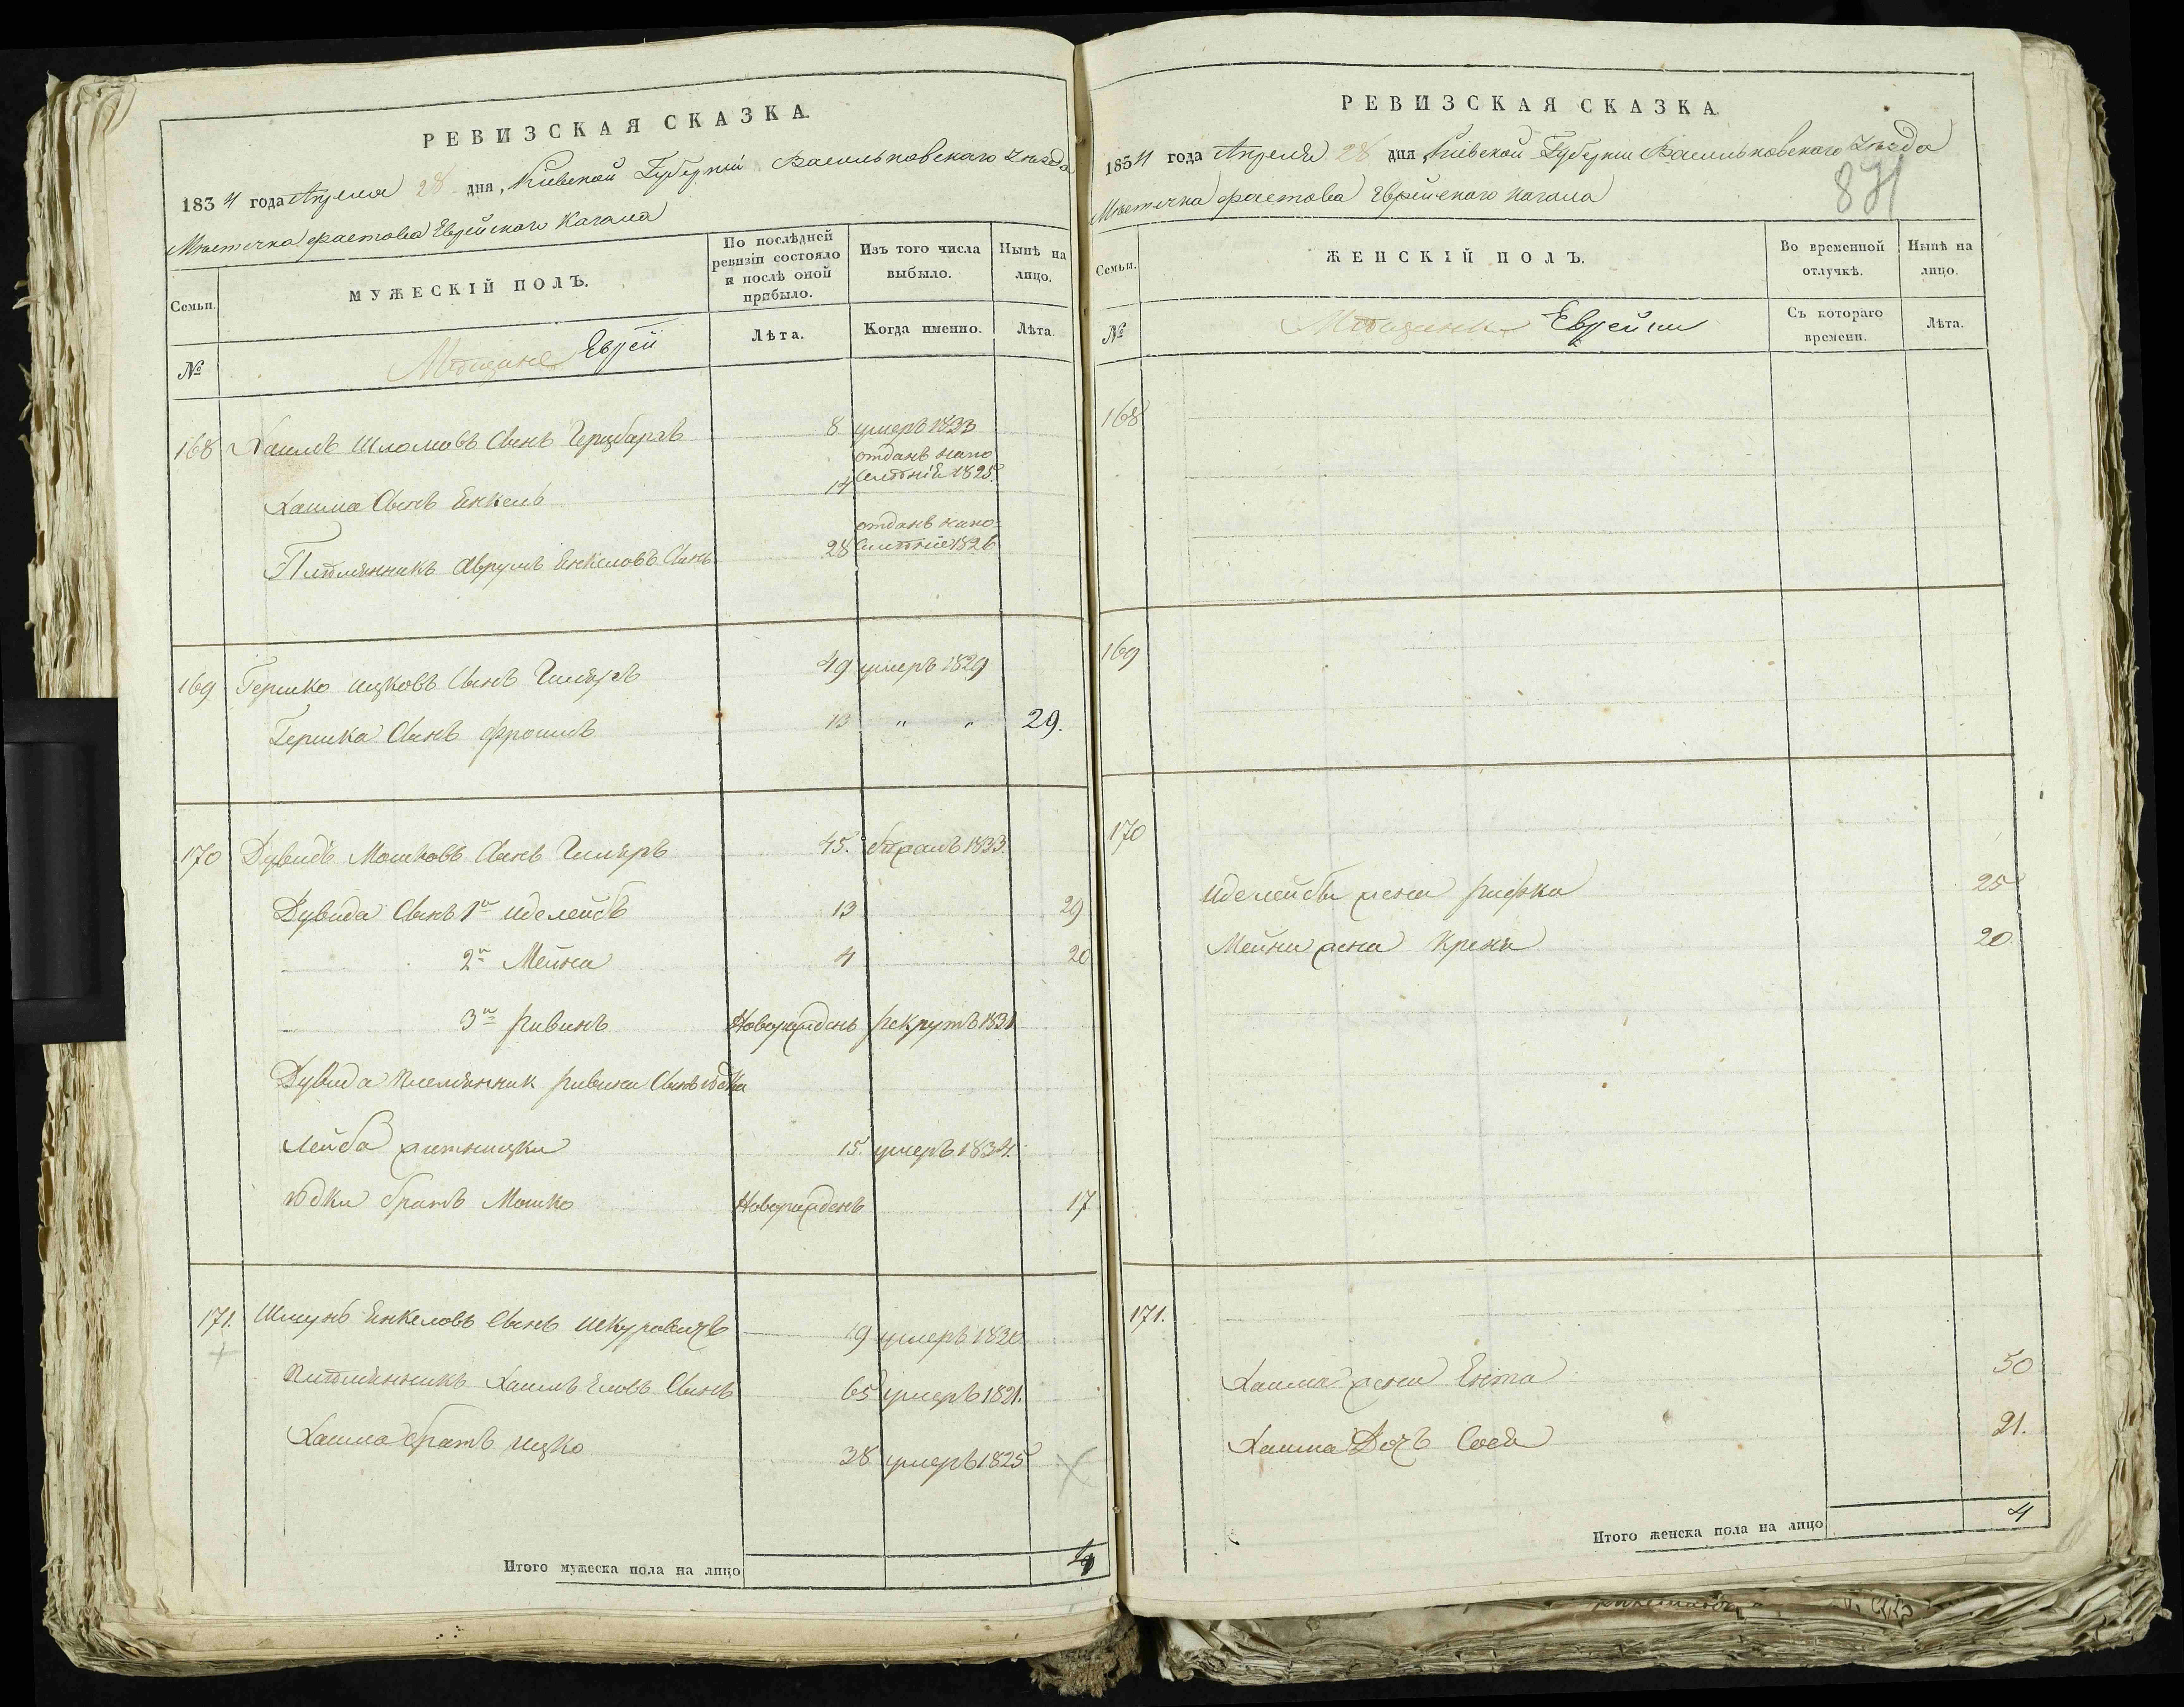 РЕВИЗСКАЯ СКАЗКА.
1834 года Апреля 28 дня, Кіевской Губерніи Васильковскаго Уѣзда
Мѣстечка Фастова Еврейскаго Кагала
Семьи.
МУЖЕСКІЙ ПОЛЪ.
По послѣдней ревизіи состояло и послѣ оной прибыло.
Изъ того числа выбыло.
Нынѣ на лицо.
№
Мѣщане Евреи
Лѣта.
Когда именно.
Лѣта.
168 Хаимъ Шломовъ Сынъ 8 умеръ 1823
Хаима Сынъ Енкель 14 отданъ на по
селѣніе 1825.
Племянникъ Аврумъ Енкеловъ Сынъ 28 отданъ на по=
1826
169 Гершко Ицковъ Сынъ 49 умеръ 1829
Гершка Сынъ Фроимъ 13 " " 29.
170 Дувидъ Мошковъ Сынъ 45. 1833.
Дувида Сынъ 1й Иделейбъ 13 29
2й Мейна 4 20
3й Ривинъ Новорожденъ рекрутъ 1831
Дувида племянник Ривина Сынъ Юдка
Лейба 15. умеръ 1834.
Юдки братъ Мошко Новорожденъ 17
171. Шмунь Енкеловъ Сынъ 19 умеръ 1820.
Племянникъ Хаимъ Сынъ 65 умеръ 1821.
Хаима братъ Ицко 38 умеръ 1825
Итого мужеска пола на лицо 4
РЕВИЗСКАЯ СКАЗКА.
1834 года Апреля 28 дня, Кіевской Губерніи Васильковскаго Уѣзда
Мѣстечка Фастова Еврейскаго Кагала
871
Семьи.
ЖЕНСКІЙ ПОЛЪ.
Во временной отлучкѣ.
Нынѣ на лицо.
№
Мѣщанки Еврейки
Съ котораго времени.
Лѣта.
168
169
170
Иделейбы жена Рифка 25
Мейни жена Креня 20
171.
Хаима жена Ента 50
Хаима Дочь Сося 21.
Итого женска пола на лицо 4